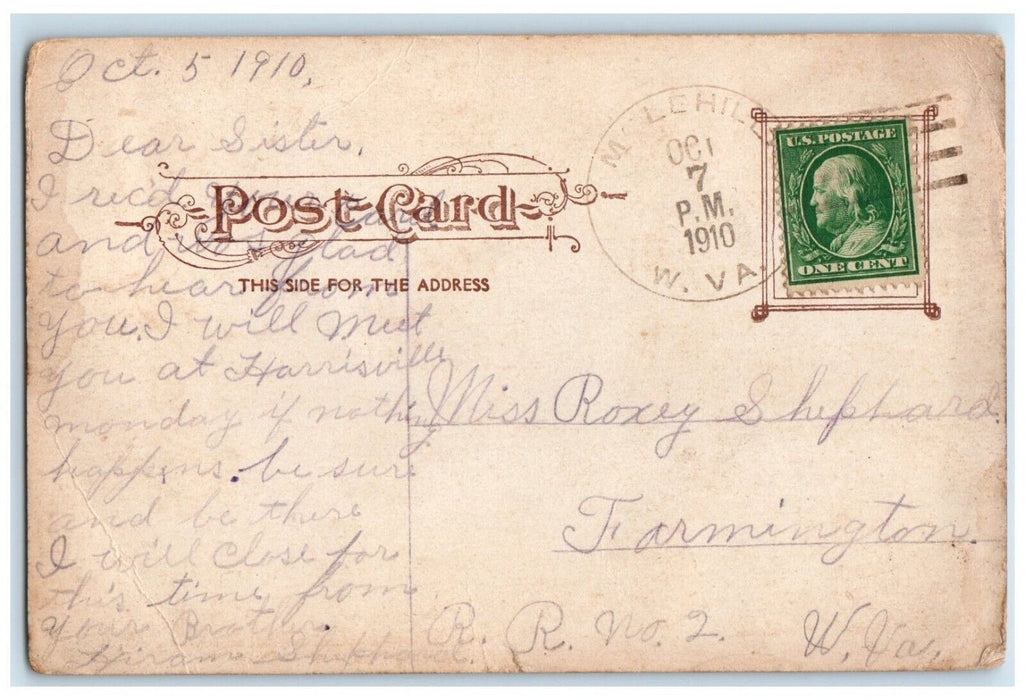 Oct. 5 1910,
Dear Sister,
I rec'd your card
and was glad
to hear from
you. I will meet
you at Harrisville
monday if nothing
happens. be sure
and be there
I will close for
this time from
your Brother.
Hiram Shephard.
Post Card
THIS SIDE FOR THE ADDRESS
OCT
7
P.M.
1910
W. VA.
U.S. POSTAGE
ONE CENT
Miss Roxey Shephard.
Farmington.
R. R. No. 2. W. Va.